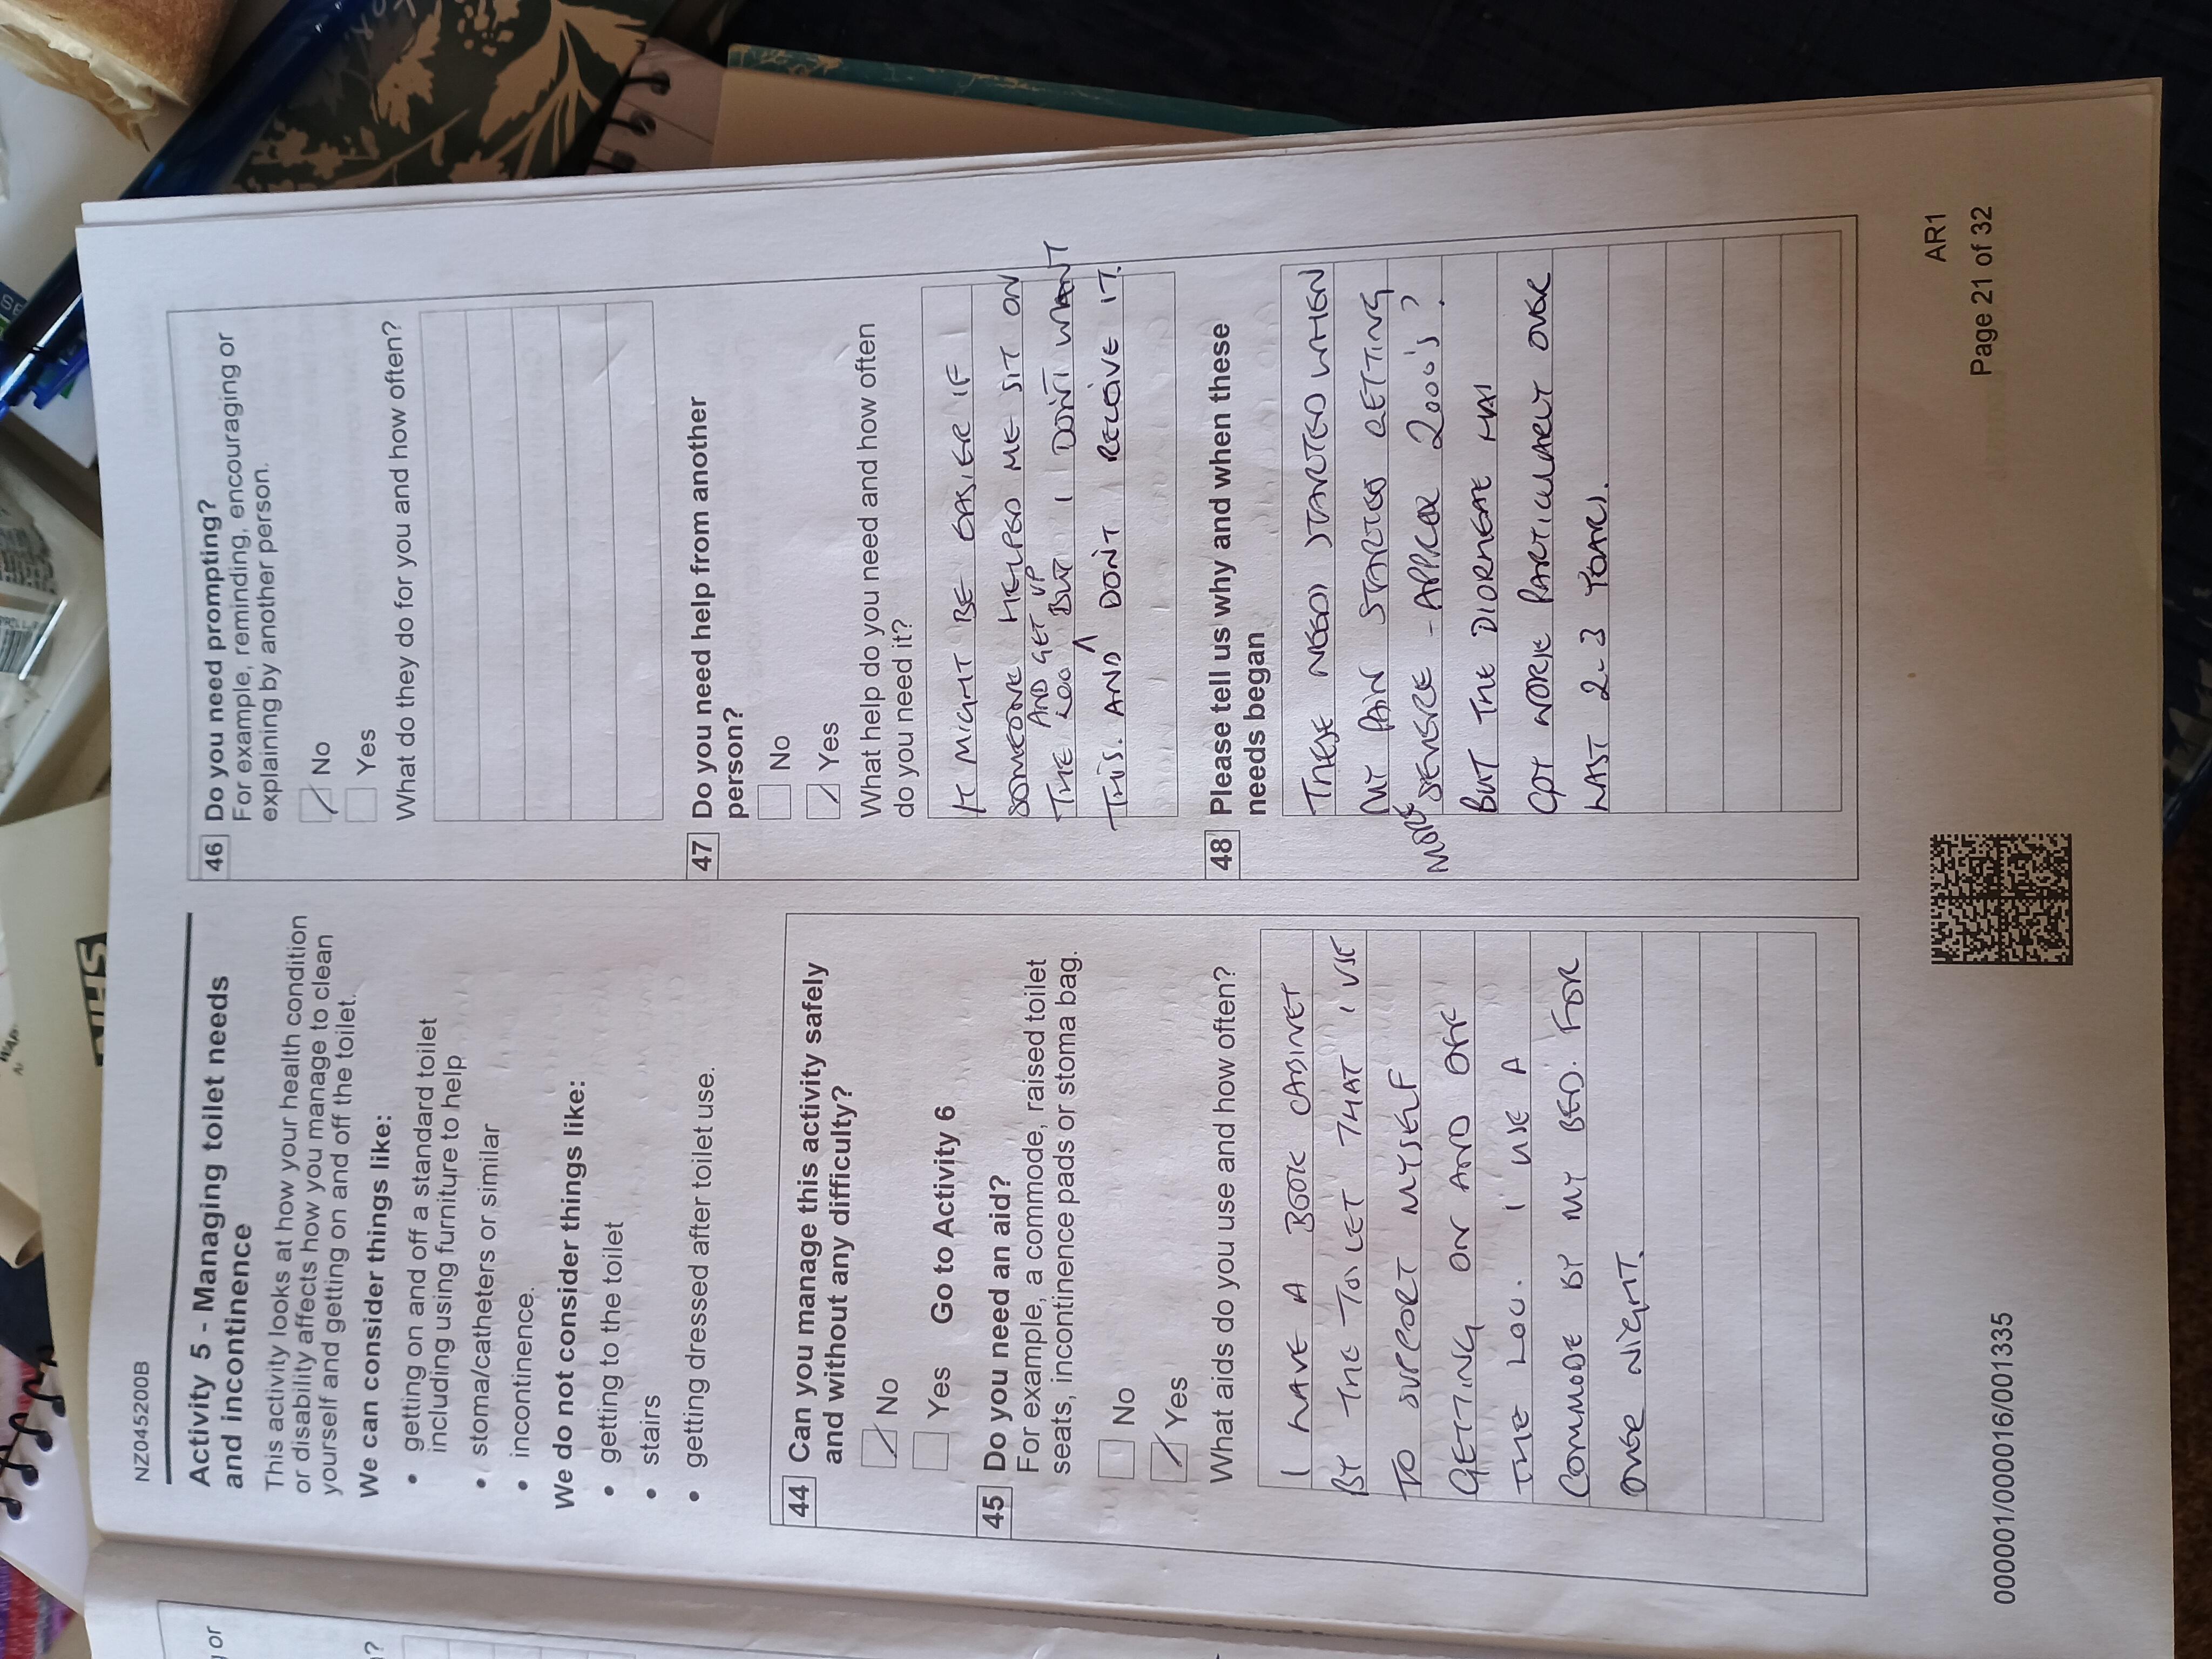 NZ0452200B
Activity 5 - Managing toilet needs
and incontinence
This activity looks at how your health condition
or disability affects how you manage to clean
yourself and getting on and off the toilet.
We can consider things like:
• getting on and off a standard toilet
including using furniture to help
• stoma/catheters or similar
• incontinence.
We do not consider things like:
• getting to the toilet
• stairs
• getting dressed after toilet use.
44 Can you manage this activity safely
and without any difficulty?
No
Yes Go to Activity 6
45 Do you need an aid?
For example, a commode, raised toilet
seats, incontinence pads or stoma bag.
No
Yes
What aids do you use and how often?
I HAVE A BOOK CABINET
BY THE TOILET THAT I USE
TO SUPPORT MYSELF
GETTING ON AND OFF
THE LOO. I USE A
COMMODE BY MY BED. FOR
OVER NIGHT.
46 Do you need prompting?
For example, reminding, encouraging or
explaining by another person.
No
Yes
What do they do for you and how often?
47 Do you need help from another
person?
No
Yes
What help do you need and how often
do you need it?
IT MIGHT BE EASIER IF
SOMEONE HELPED ME SIT ON
AND GET UP
THE LOO BUT I DON'T WANT
THIS. AND DON'T RECEIVE IT.
48 Please tell us why and when these
needs began
THESE NEEDS STARTED WHEN
MY PAIN STARTED GETTING
MORE SEVERE - APPROX 2000'S?
BUT THE
PARTICULARLY OVER
LAST 2-3 YEARS.
000001/000016/001335
AR1
Page 21 of 32
NHS
or
?